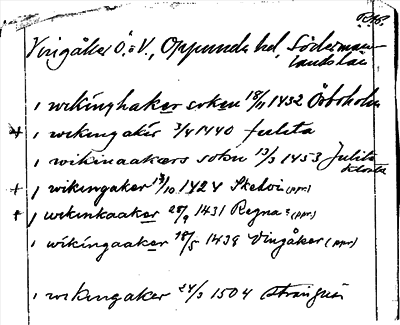 RAP.
Vingåker Ö. o V., Oppunda hd, Söderman-
lands län
i wikinghaker soken 18/11 1432 Örboholm
+ i wikengakir 3/4 1440 Julita
i wikinaakers sokn 13/3 1453 Julita
kloster
+ i wikingaker 13/10 1424 (ppr.)
+ i wikinkaaker 28/9 1431 Regna? (ppr.)
i wikingaaker 18/5 1439 Vingåker (ppr.)
i wikingaker 24/3 1504 Strängnäs